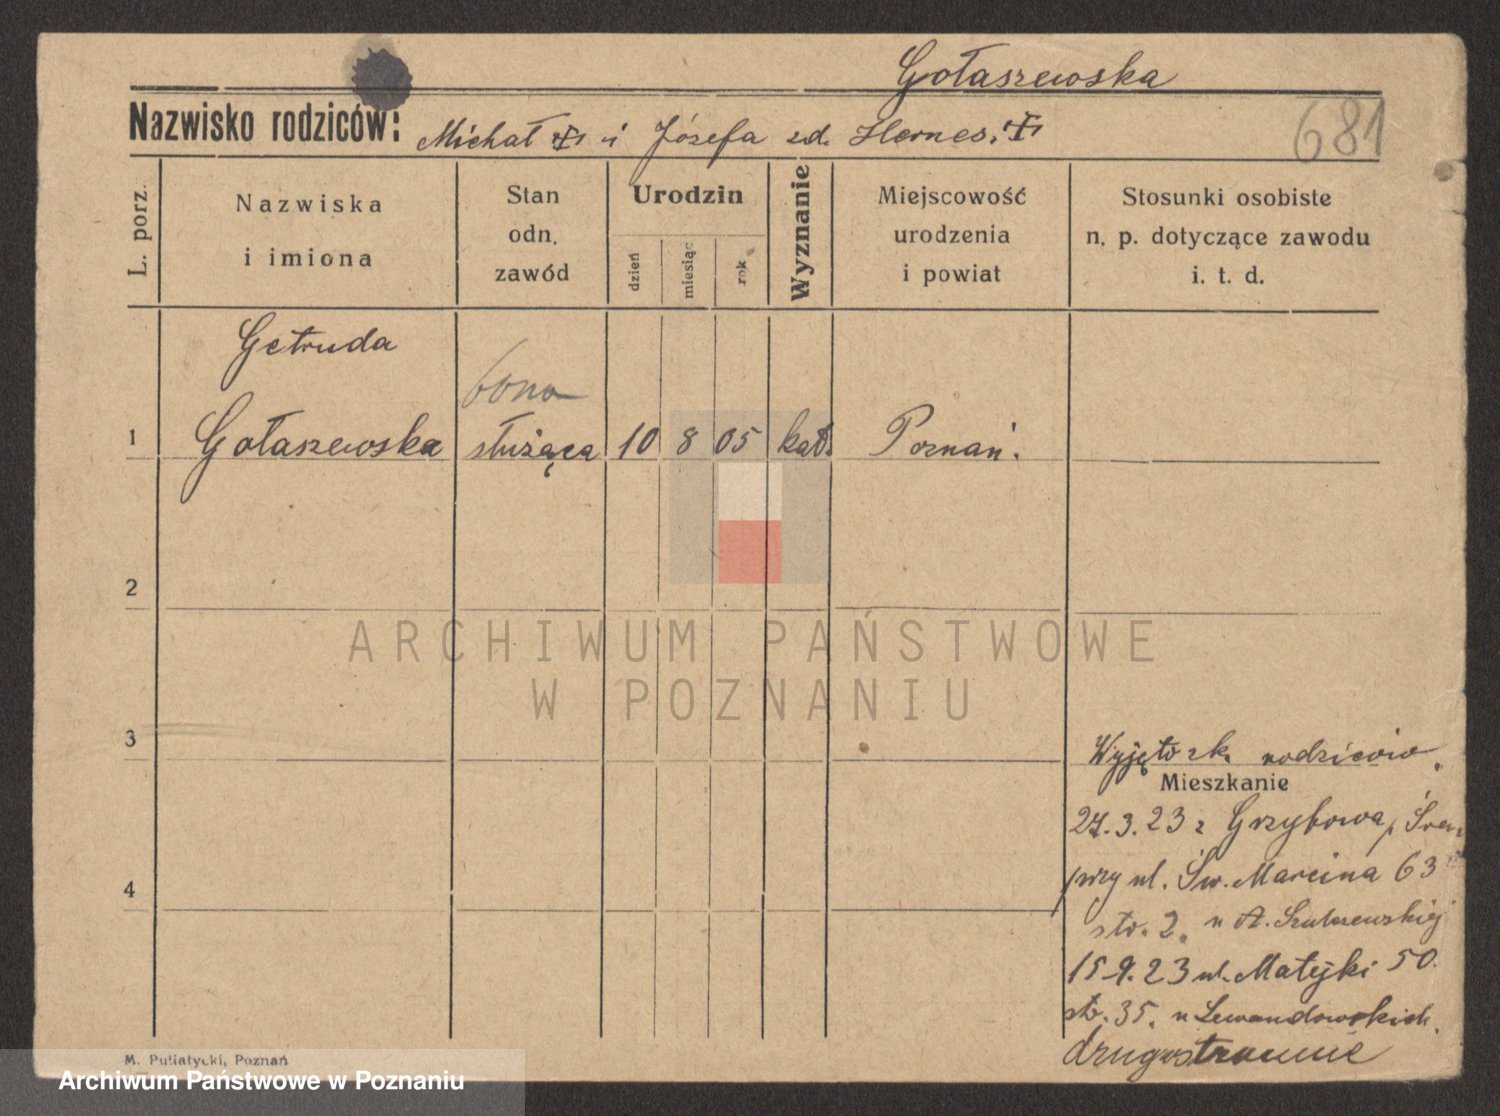 Gołaszewska
681
Nazwisko rodziców: Michał i Józefa zd.
L. porz.
Nazwiska
i imiona
Stan
odn.
zawód
Urodzin
dzień
miesiąc
rok
Wyznanie
Miejscowość
urodzenia
i powiat
Stosunki osobiste
n. p. dotyczące zawodu
i. t. d.
Getruda
bona
1 Gołaszewska służąca 10 8 05 kat. Poznań.
2
ARCHIWUM PAŃSTWOWE
W POZNANIU
3
Wyjęto z k. rodziców.
Mieszkanie
27.3.23 z Grzybowa,
przy ul. Św. Marcina 63
4
str. 2. u A.
15.9.23 ul. Matejki 50.
str. 35. u Lewandowskich.
drugostronnie
M. Puliatycki, Poznań
Archiwum Państwowe w Poznaniu